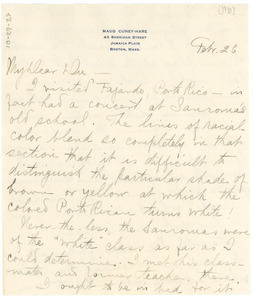 [1931]
MAUD CUNEY-HARE
43 SHERIDAN STREET
JAMAICA PLAIN
BOSTON, MASS.
Feb. 26
My dear Du -
I visited Fajardo, Porto Rico - in
fact had a concert at Sanroma's
old school. The lines of racial
color blend so completely in that
section that it is difficult to
distinguish the particular shade of
brown or yellow at which the
colored Porto Rican turns white!
Never-the-less, the Sanromas were
of the "White class as far as I
could determine. I met his class-
mates and former teachers there.
I ought to be in bed for it